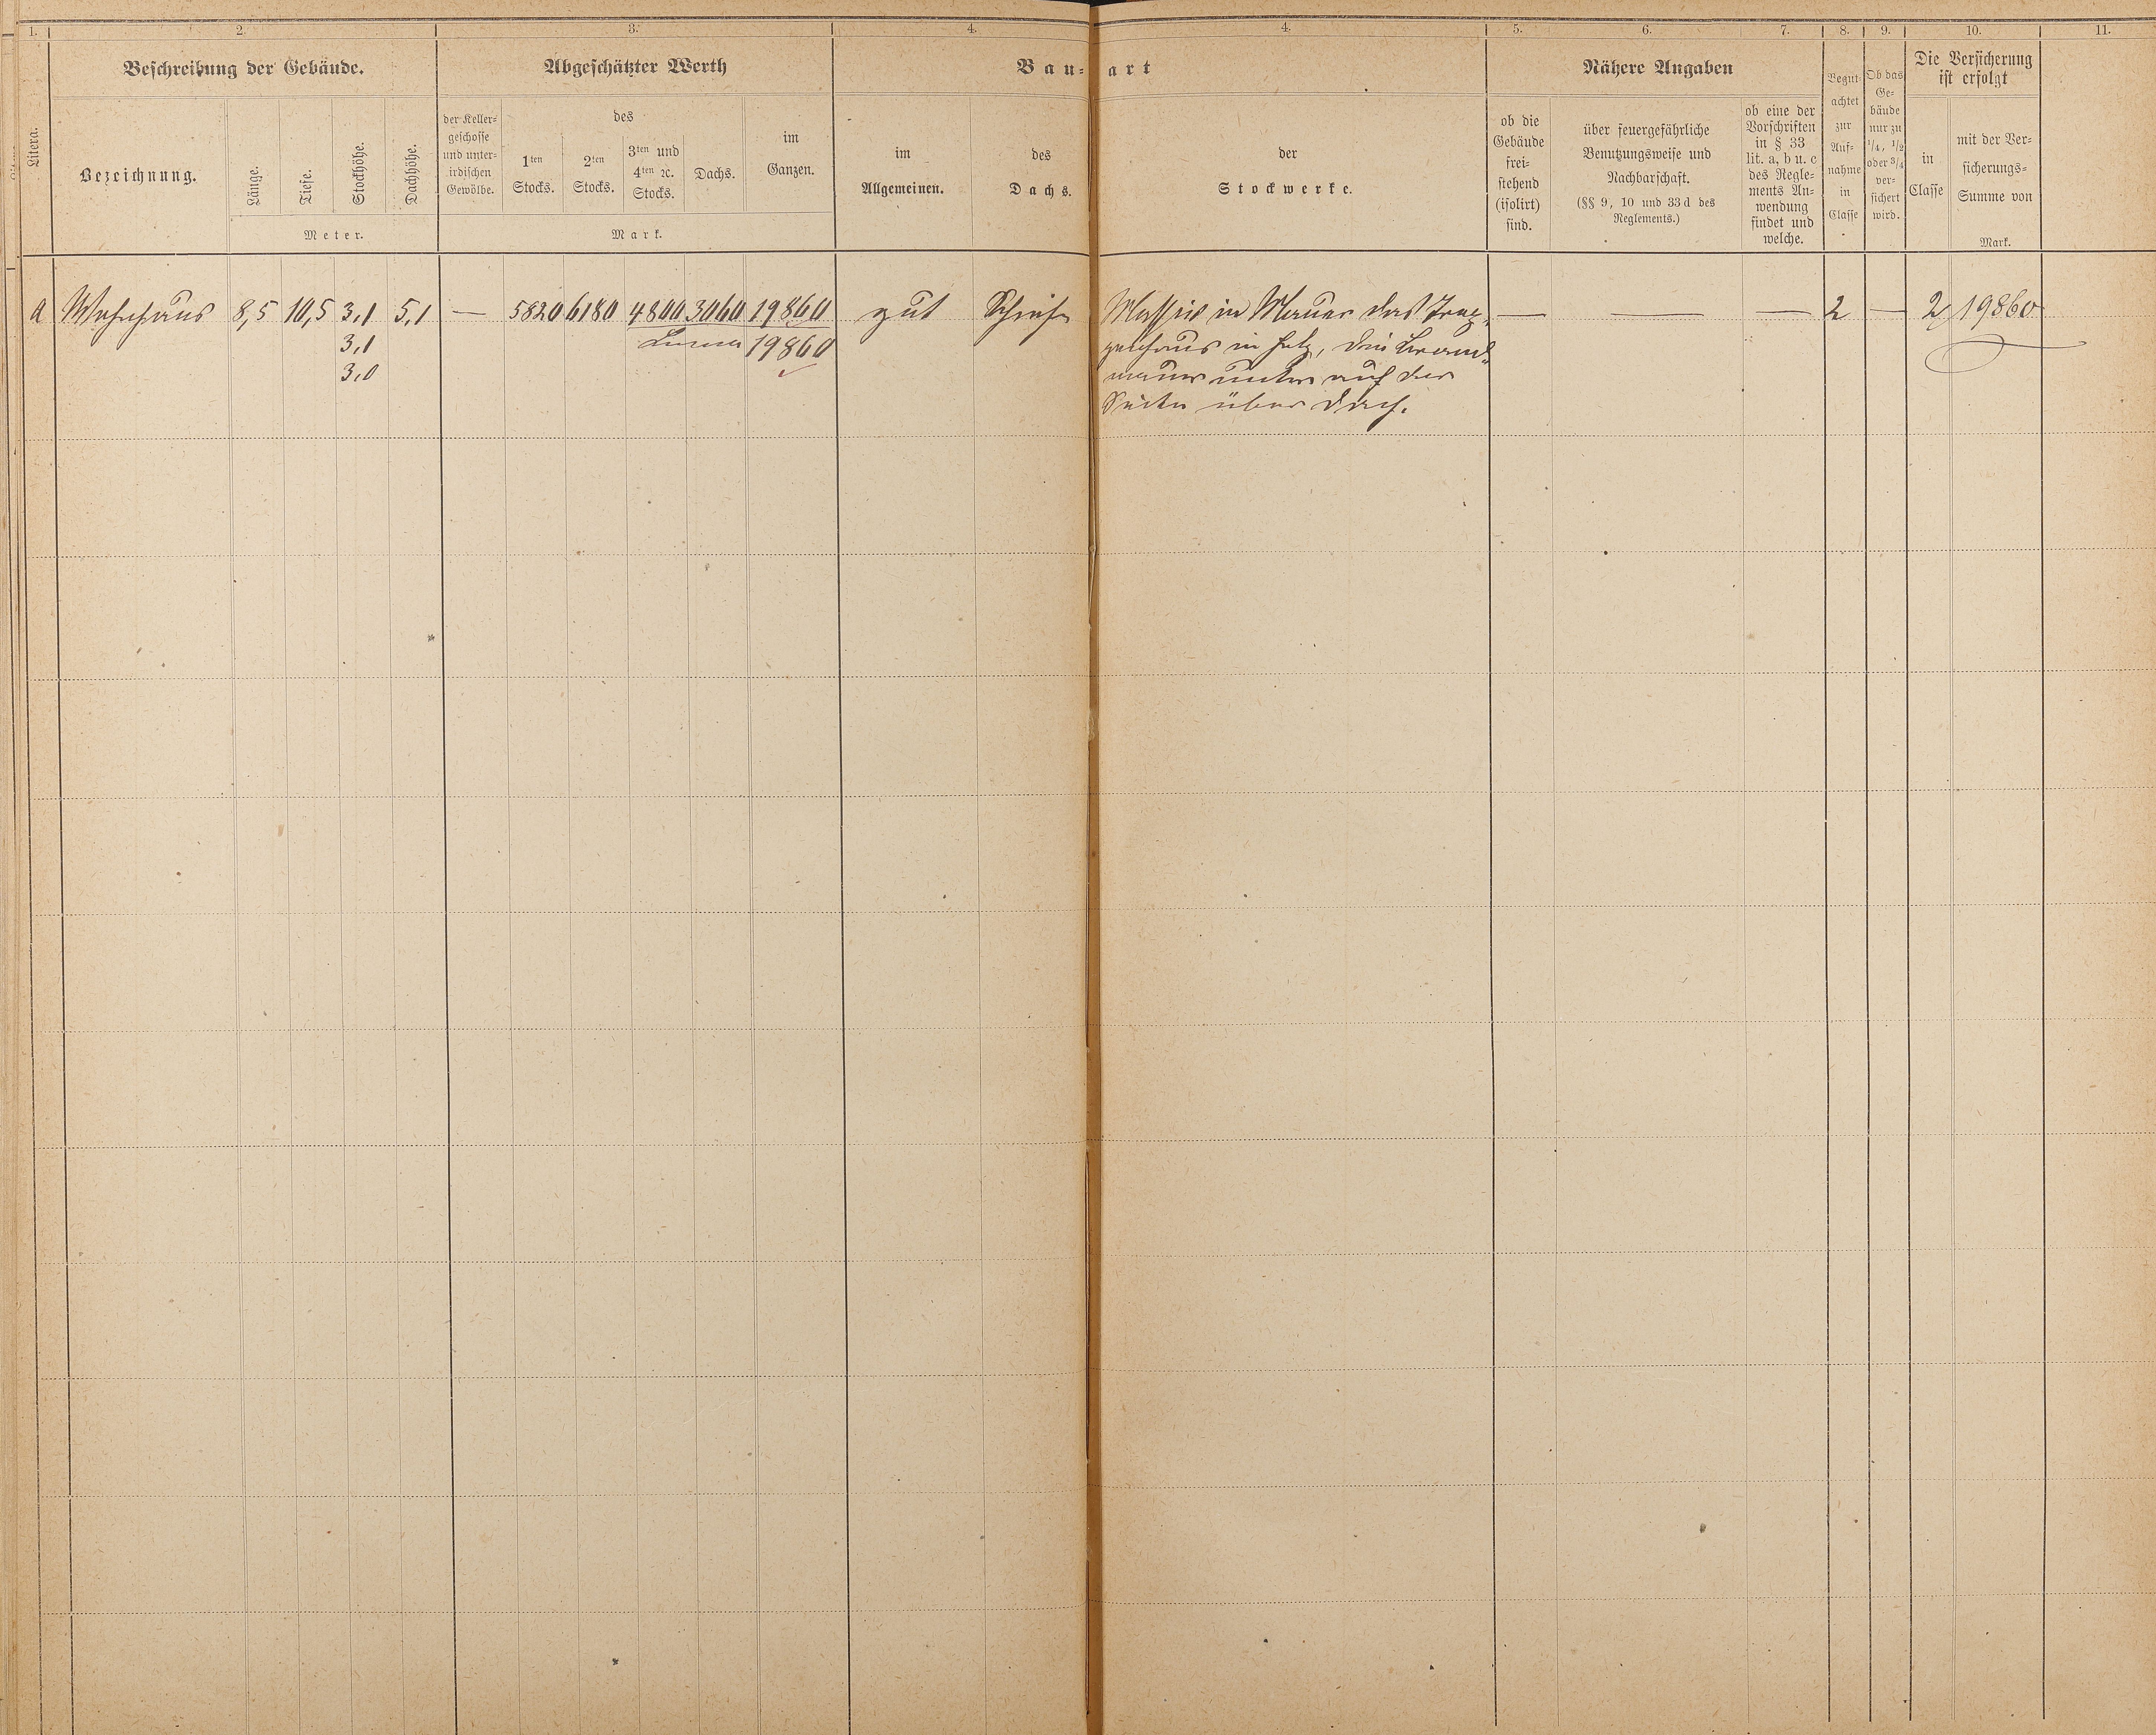 1. 2. 3. 4. 4. 5. 6. 7. 8. 9. 10. 11.
Litera.
Beschreibung der Gebäude.
Bezeichnung.
Länge.
Tiefe.
Stockhöhe.
Dachhöhe.
Meter.
Abgeschätzter Werth
der Keller-
geschosse
und unter-
irdischen
Gewölbe.
des
1ten
Stocks.
2ten
Stocks.
3ten und
4ten ꝛc.
Stocks.
Dachs.
im
Ganzen.
Mark.
Bau-art
im
Allgemeinen.
des
Dachs.
der
Stockwerke.
Nähere Angaben
ob die
Gebäude
frei-
stehend
(isolirt)
sind.
über feuergefährliche
Benutzungsweise und
Nachbarschaft.
(§§ 9, 10 und 33d des
Reglements.)
ob eine der
Vorschriften
in § 33
lit. a, b u. c
des Regle-
ments An-
wendung
findet und
welche.
Begut-
achtet
zur
Auf-
nahme
in
Classe
Ob das
Ge-
bäude
nur zu
1/4, 1/2
oder 3/4
ver-
sichert
wird.
Die Versicherung
ist erfolgt
in
Classe
mit der Ver-
sicherungs-
Summe von
Mark.
a Wohnhaus 8,5 10,5 3,1 5,1 — 5820 6180 4800 3060 19860 gut Schiefer Massiv in Mauer das Trep- — — — 2 — 2 19860
3,1 Summa 19860 penhaus in Holz, die Brand-
3,0 mauer unten auf der
Seite über Dach.